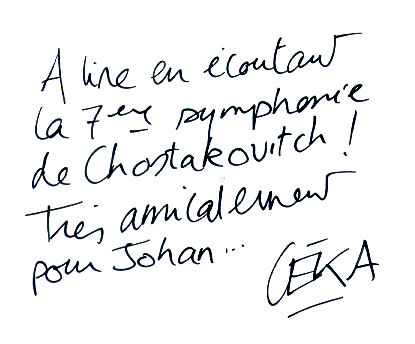 A lire en écoutant
la 7eme symphonie
de Chostakovitch !
Très amicalement
pour Johan...
CÉKA